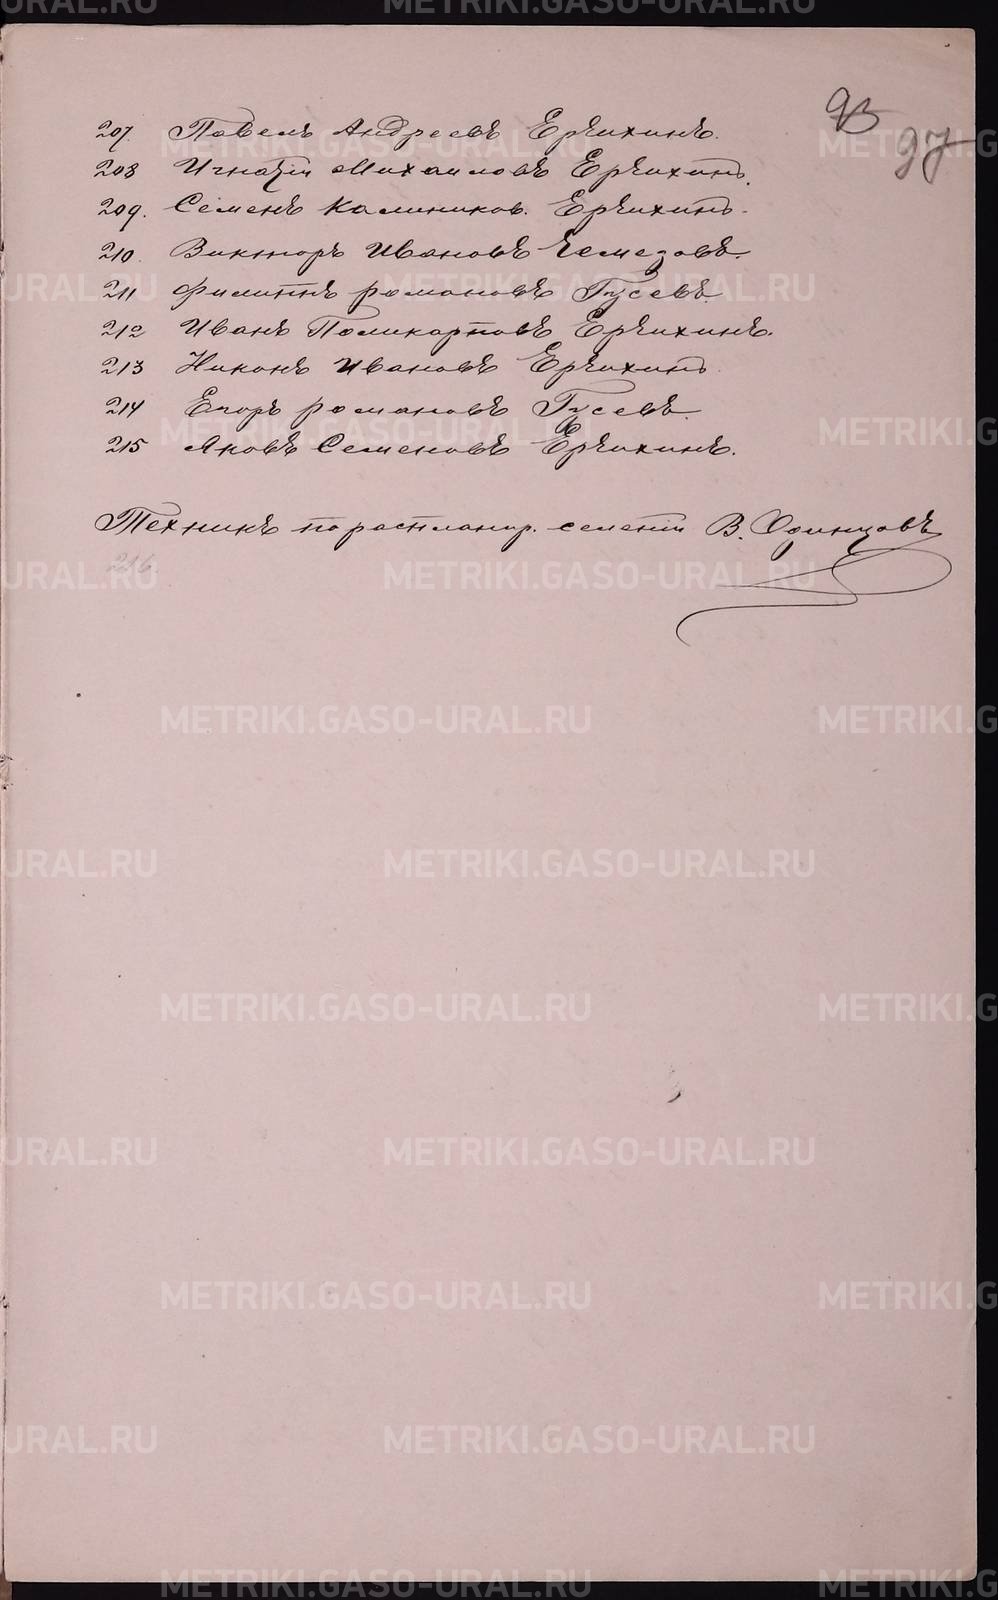 93
97
207. Павелъ Андреевъ Ерѣихинъ.
208 Игнатiи Михаиловъ Ерѣихинъ.
209. Семенъ Калиников. Ерѣихинъ.
210. Викторъ Ивановъ Чемезовъ.
211 Филиппъ Романовъ Гусевъ.
212 Иванъ Поликарповъ Ерѣихинъ.
213 Никонъ Ивановъ Ерѣихинъ.
214 Егоръ Романовъ Гусевъ.
215 Яковъ Семеновъ Ерѣихинъ.
Техникъ по распланир. селенiи В. Одинцовъ
216.
METRIKI.GASO-URAL.RU